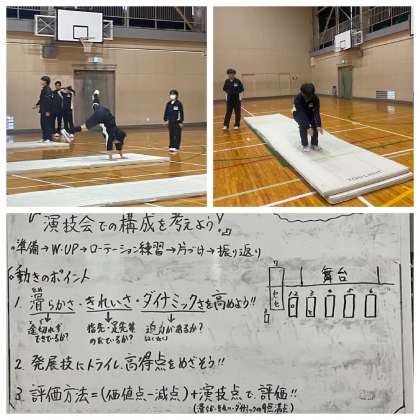 「演技会での構成を考えよう!」
○準備→W-UP→ローテーション練習→片づけ→振り返り
○動きのポイント
1. 滑らかさ・きれいさ・ダイナミックさを高めよう!!
途切れず
できているか?
指先・足先等
のびているか?
迫力があるか?
2. 発展技にトライし、高得点をめざそう!!
3. 評価方法=(価値点-減点)+演技点で評価!!
舞台